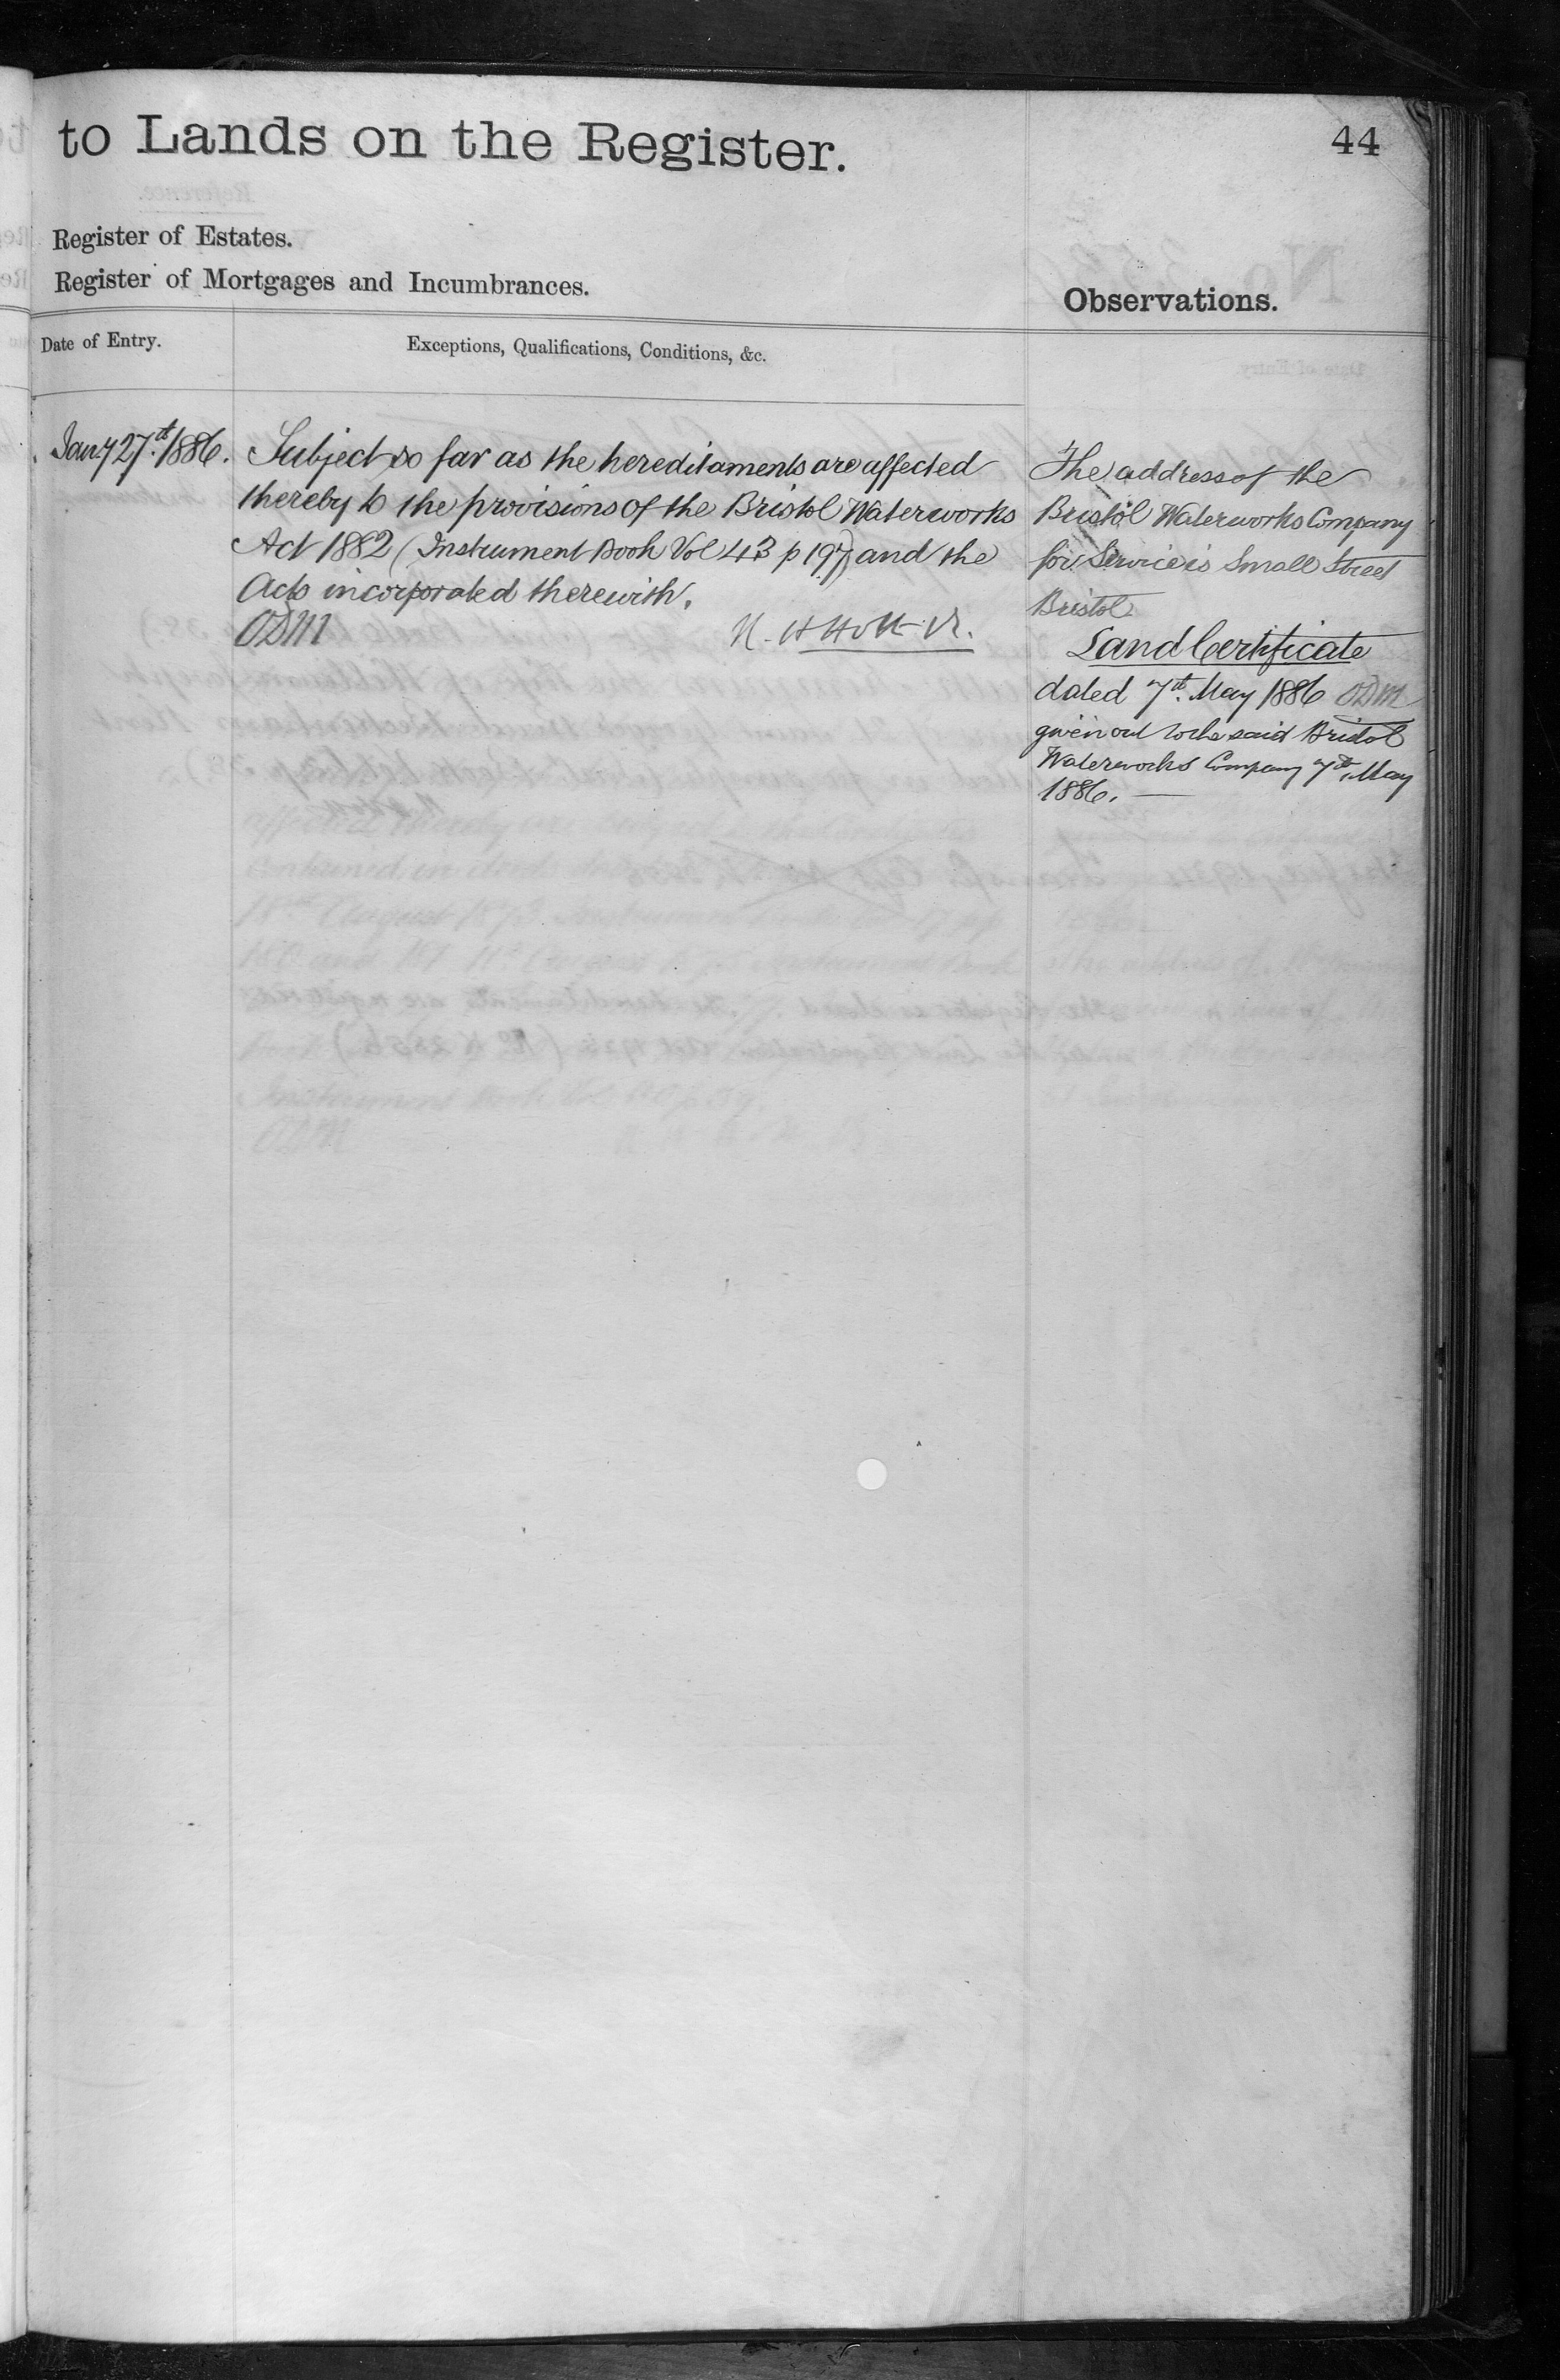 to Lands on the Register.
44
Register of Estates.
Register of Mortgages and Incumbrances.
Observations.
Date of Entry.
Exceptions, Qualifications, Conditions, &c.
Jany 27th. 1886.
Subject so far as the hereditaments are affected
thereby to the provisions of the Bristol Waterworks
Act 1882 (Instrument Book Vol 43 p 197) and the
Acts incorporated therewith.
ODM
The address of the
Bristol Waterworks Company
for Service is Small Street
Bristol
Land Certificate
dated 7th. May 1886 ODM
given out to the said Bristol
Waterworks Company 7th. May
1886. —